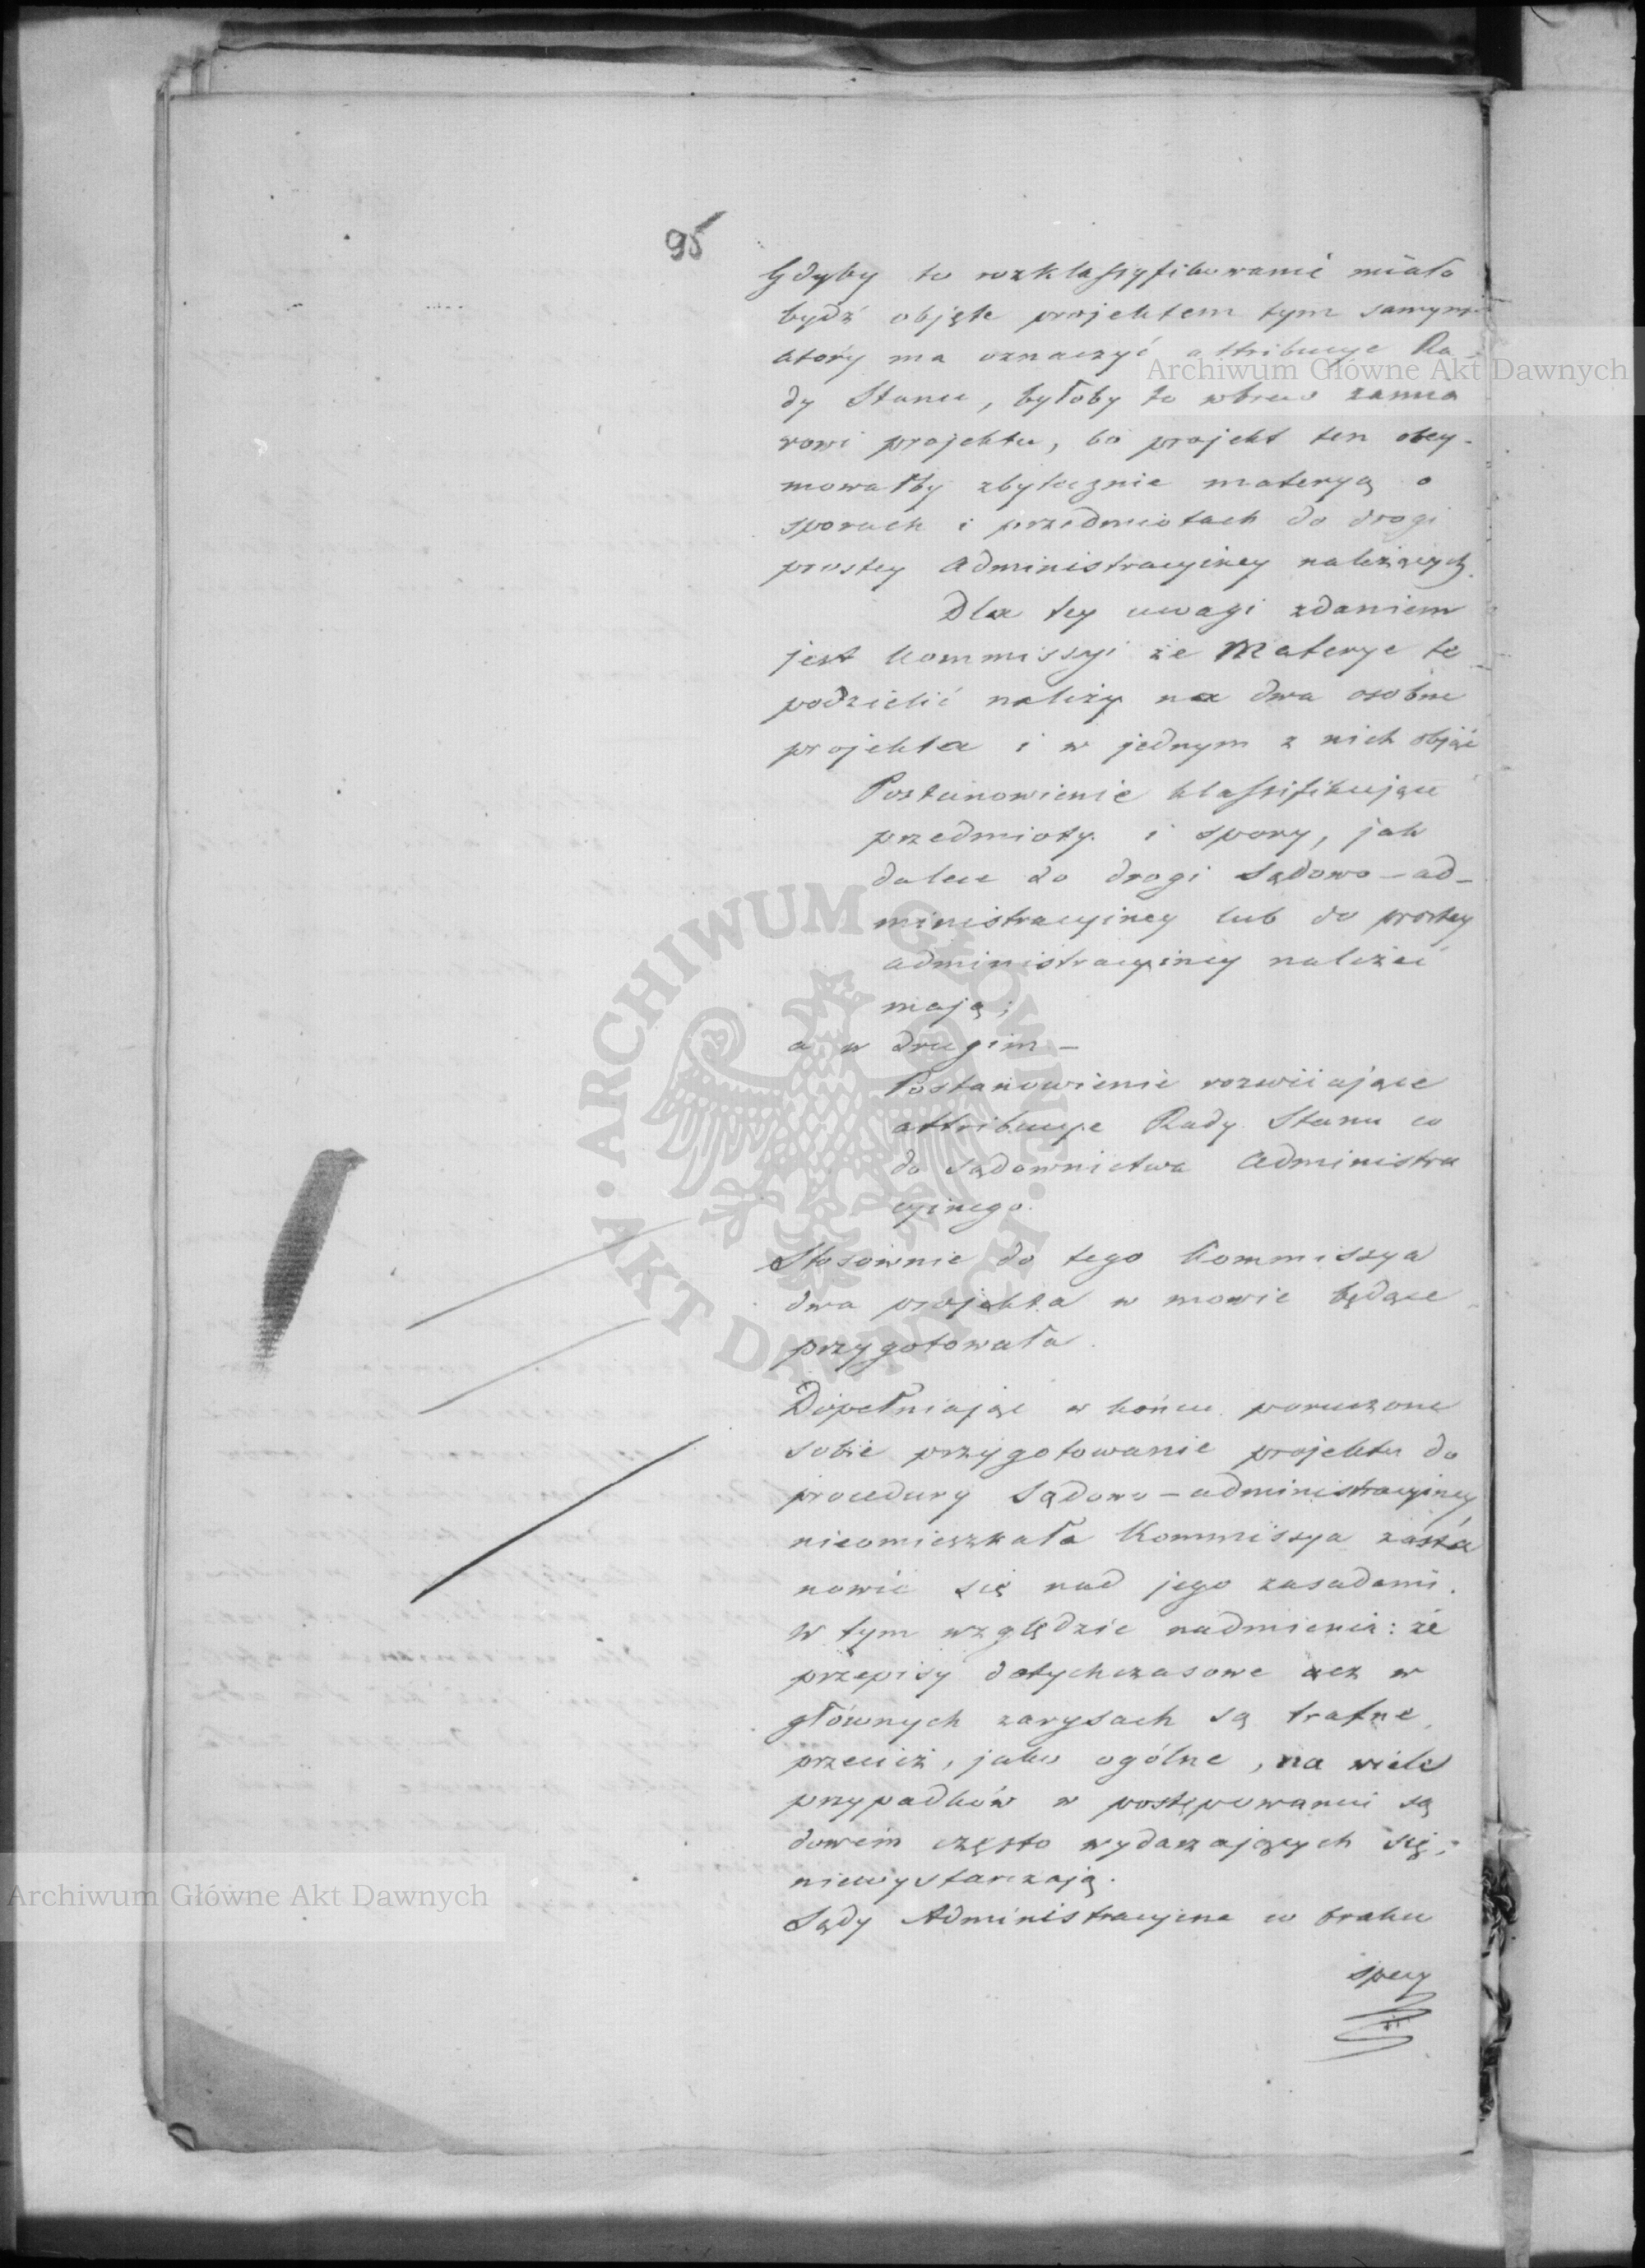 95
Gdyby to rozklassyfikowanie miało
bydź objęte projektem tym samym
który ma oznaczyć attribucye Ra-
dy Stanu, byłoby to wbrew zamia
rowi projektu, bo projekt ten obey-
mowałby zbytecznie materyą o
sporach i przedmiotach do drogi
prostey administracyiney należących.
Dla tey uwagi zdaniem
jest Kommissyi że Materye te
podzielić należy na dwa osobne
projekta i w jednym z nich objąć
Postanowienie klassifikujące
przedmioty i spory, jak
dalece do drogi Sądowo-ad-
ministracyiney lub do prostey
administracyiney należeć
mają;
a w drugim –
Postanowienie rozwiiające
attribucye Rady Stanu co
do sądownictwa Administra
cyinego.
Stosownie do tego Kommissya
dwa projekta w mowie będące
przygotowała.
Dopełniając w końcu poruczone
sobie przygotowanie projektu do
procedury Sądowo-administracyiney
nieomieszkała Kommissya zasta
nowić się nad jego zasadami.
W tym względzie nadmienia: że
przepisy dotychczasowe acz w
głównych zarysach są trafne,
przecież, jako ogólne, na wiele
przypadków w postępowaniu są
dowem często wydarzających się,
niewystarczają.
Sądy Administracyine w braku
specy
Archiwum Główne Akt Dawnych
ARCHIWUM GŁÓWNE AKT DAWNYCH
Archiwum Główne Akt Dawnych